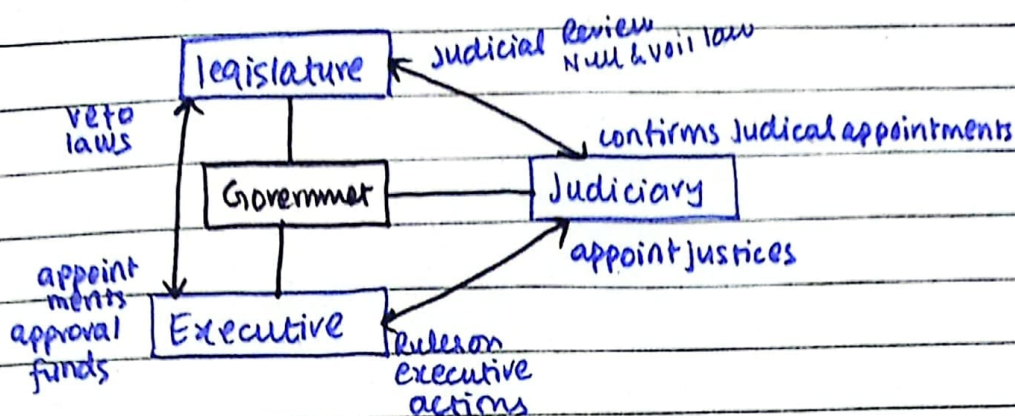 Judicial Review
Null & voil law
legislature
veto
laws
confirms Judical appointments
Governmet
Judiciary
appoint justices
appoint
ments
approval
funds
Executive
Rules on
executive
actions